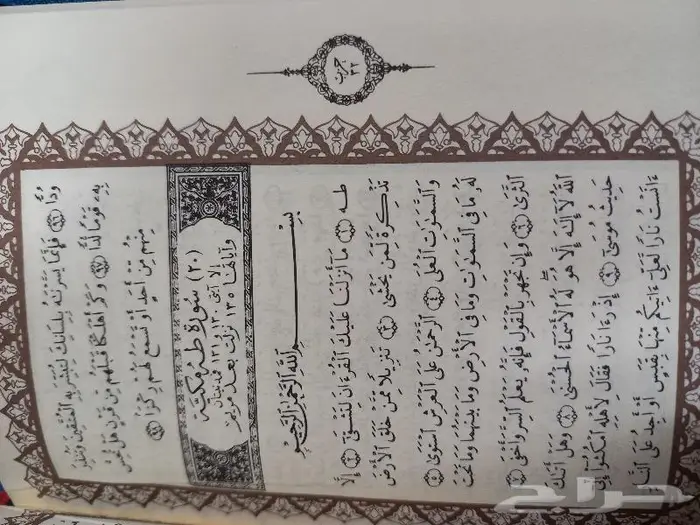 حزب
٣٢
وُدًّا ﴿٩٦﴾ فَإِنَّمَا يَسَّرْنَٰهُ بِلِسَانِكَ لِتُبَشِّرَ بِهِ ٱلْمُتَّقِينَ وَتُنذِرَ
بِهِۦ قَوْمًا لُّدًّا ﴿٩٧﴾ وَكَمْ أَهْلَكْنَا قَبْلَهُم مِّن قَرْنٍ هَلْ تُحِسُّ
مِنْهُم مِّنْ أَحَدٍ أَوْ تَسْمَعُ لَهُمْ رِكْزًا ﴿٩٨﴾
(٢٠) سورة طه مكية
إلا آيتي ١٣٠ و ١٣١ فمدنيتان
وآياتها ١٣٥ نزلت بعد مريم
بِسْمِ ٱللَّهِ ٱلرَّحْمَٰنِ ٱلرَّحِيمِ
طه ﴿١﴾ مَآ أَنزَلْنَا عَلَيْكَ ٱلْقُرْءَانَ لِتَشْقَىٰٓ ﴿٢﴾ إِلَّا
تَذْكِرَةً لِّمَن يَخْشَىٰ ﴿٣﴾ تَنزِيلًا مِّمَّنْ خَلَقَ ٱلْأَرْضَ
وَٱلسَّمَٰوَٰتِ ٱلْعُلَى ﴿٤﴾ ٱلرَّحْمَٰنُ عَلَى ٱلْعَرْشِ ٱسْتَوَىٰ ﴿٥﴾
لَهُۥ مَا فِى ٱلسَّمَٰوَٰتِ وَمَا فِى ٱلْأَرْضِ وَمَا بَيْنَهُمَا وَمَا تَحْتَ
ٱلثَّرَىٰ ﴿٦﴾ وَإِن تَجْهَرْ بِٱلْقَوْلِ فَإِنَّهُۥ يَعْلَمُ ٱلسِّرَّ وَأَخْفَى ﴿٧﴾
ٱللَّهُ لَآ إِلَٰهَ إِلَّا هُوَ لَهُ ٱلْأَسْمَآءُ ٱلْحُسْنَىٰ ﴿٨﴾ وَهَلْ أَتَىٰكَ
حَدِيثُ مُوسَىٰٓ ﴿٩﴾ إِذْ رَءَا نَارًا فَقَالَ لِأَهْلِهِ ٱمْكُثُوٓا۟ إِنِّىٓ
ءَانَسْتُ نَارًا لَّعَلِّىٓ ءَاتِيكُم مِّنْهَا بِقَبَسٍ أَوْ أَجِدُ عَلَى ٱلنَّارِ
حراج